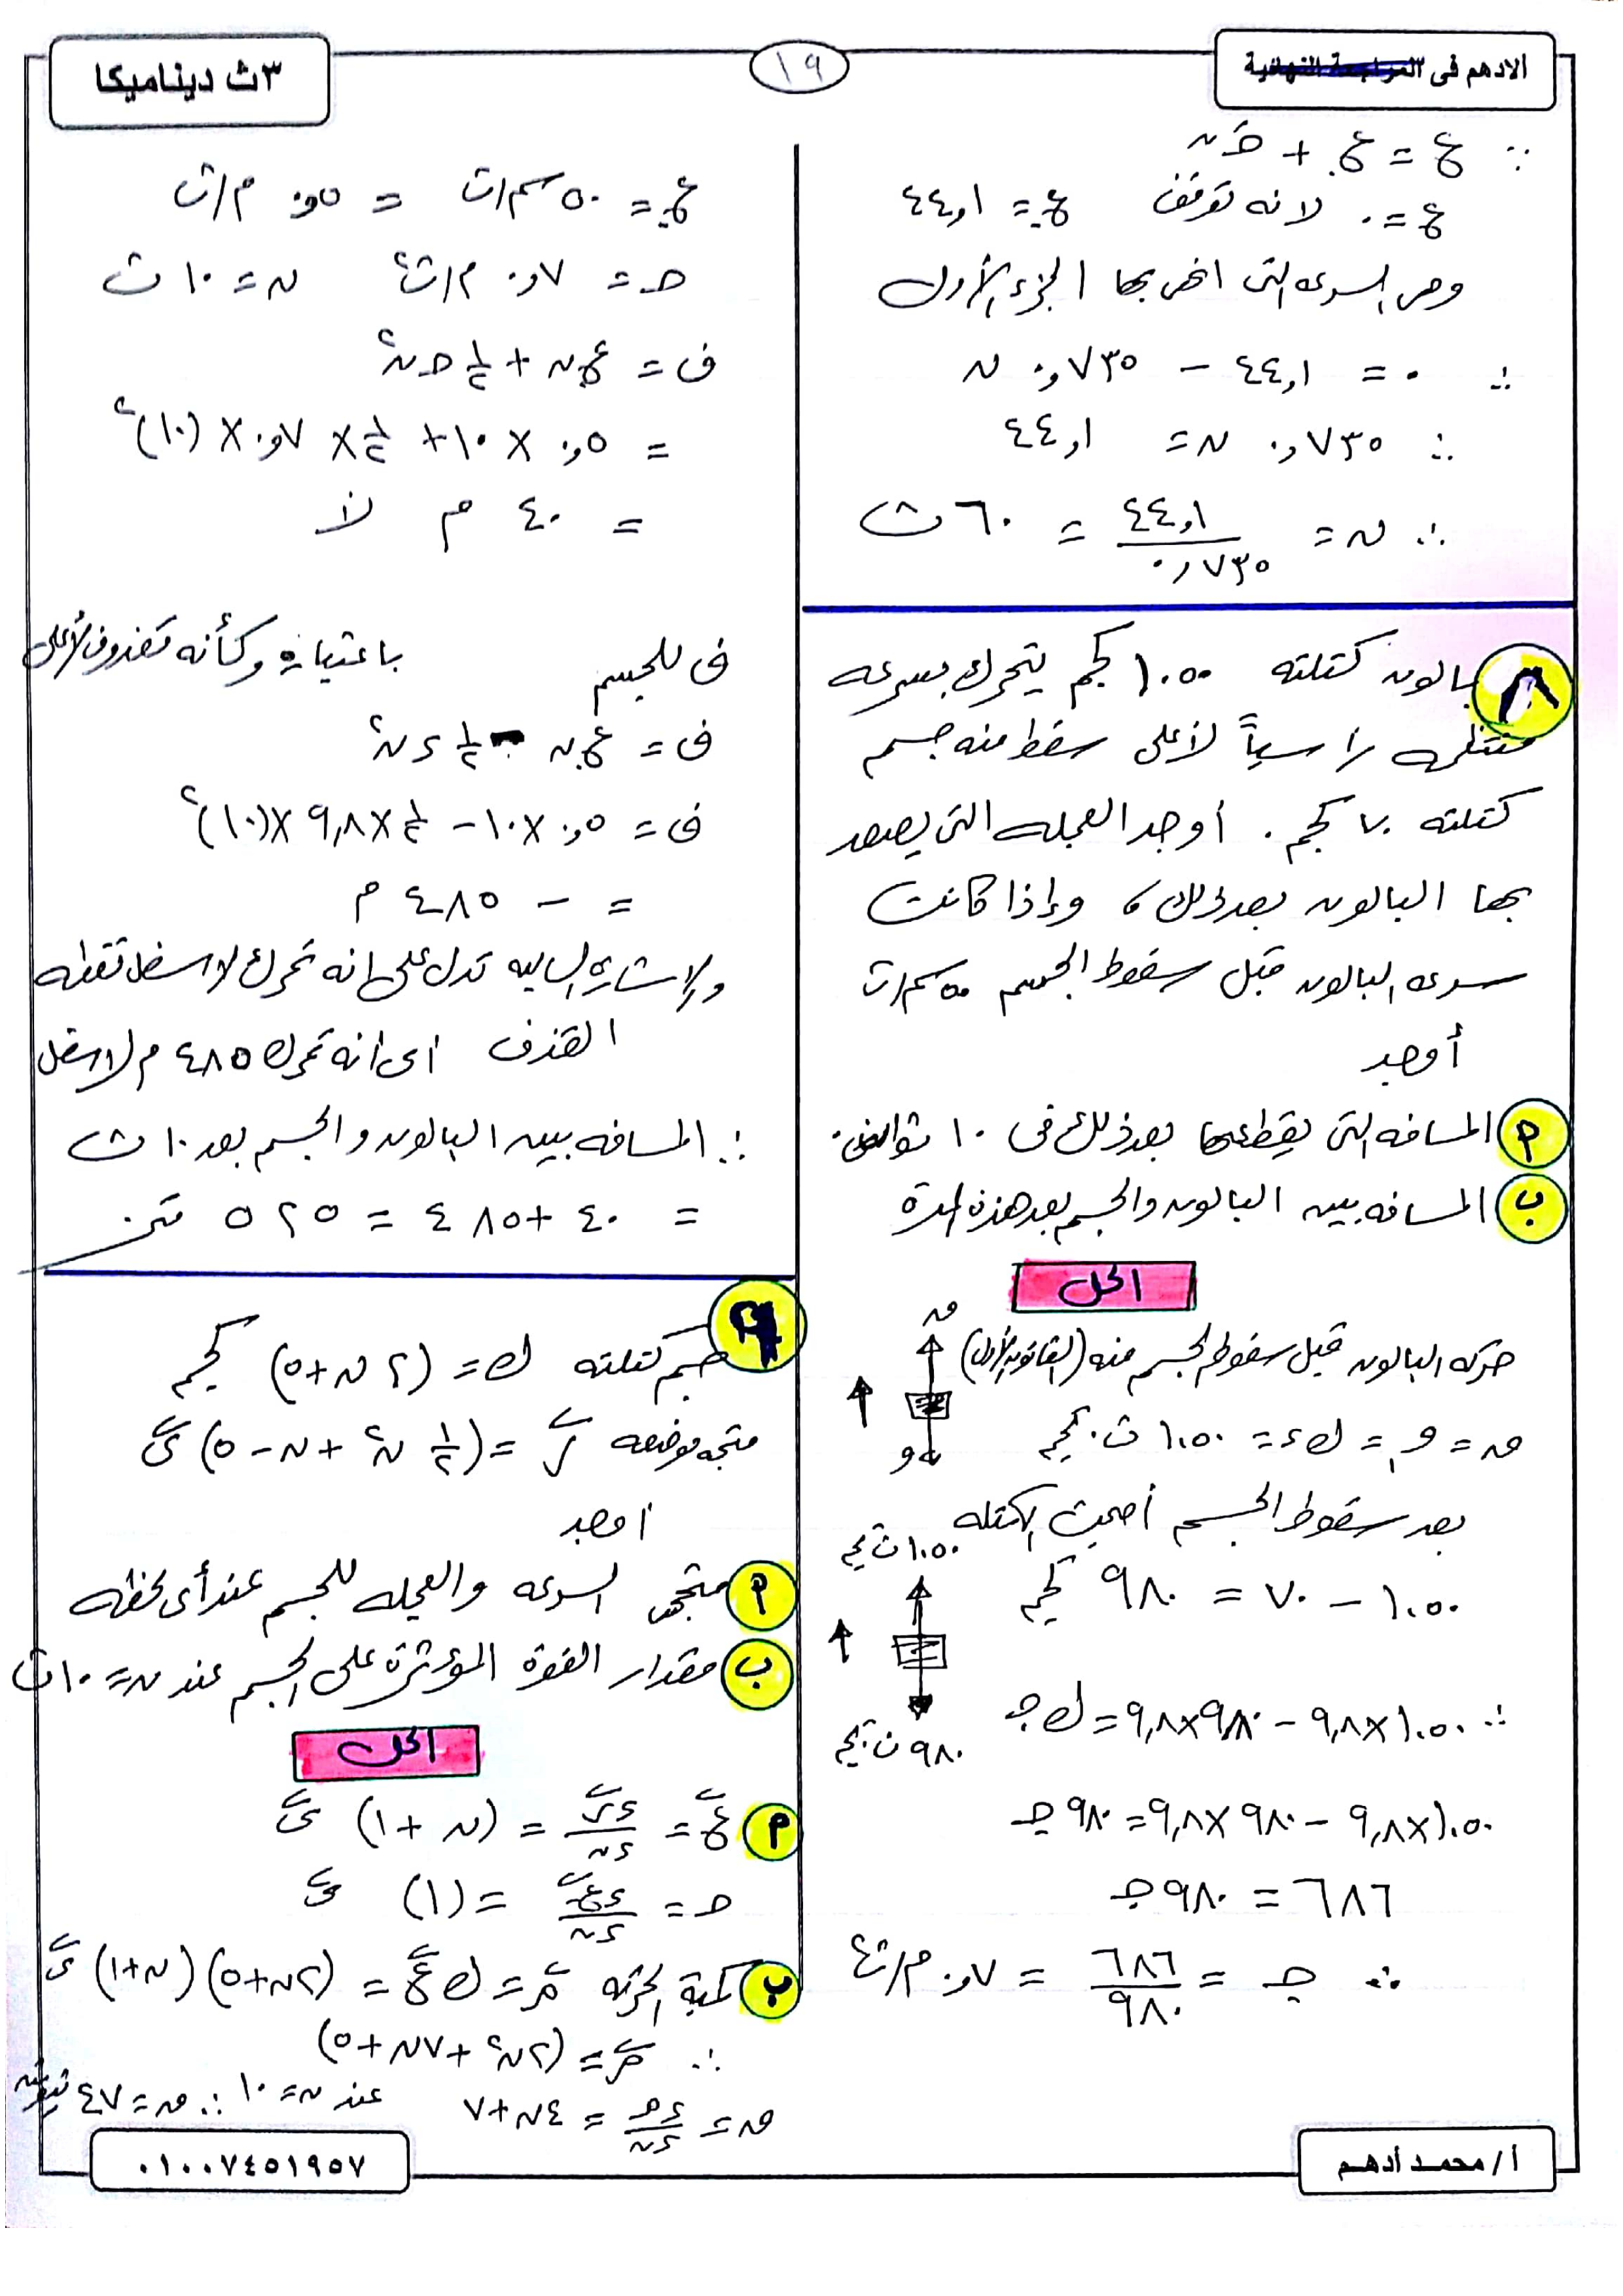 الادهم فى المراجعة النهائية
١٩
٣ث ديناميكا
∵ ع = ع. + حـ ن
ع = ٠ لانه توقف ع. = ٤٤,١
وهى السرعه التى انفجر بها الجزء الأول
∴ ٠ = ٤٤,١ − ٠,٧٣٥ ن
∴ ٠,٧٣٥ ن = ٤٤,١
∴ ن = ٤٤,١ / ٠,٧٣٥ = ٦٠ ث
٨ بالون كتلته ١٠٥٠ كجم يتحرك بسرعه
منتظمه راسياً لأعلى سقط منه جسم
كتلته ٧٠ كجم . أوجد العجله التى يصعد
بها البالون بعد ذلك ، وإذا كانت
سرعه البالون قبل سقوط الجسم ٥٠ سم/ث
أوجد
٢ المسافه التى يقطعها بعد ذلك فى ١٠ ثوانى .
ب المسافه بين البالون والجسم بعد هذه المدة
الحل
حركه البالون قبل سقوط الجسم منه (القانون الأول)
ن
و
ق = و = ك ء = ١٠٥٠ ث.كجم
بعد سقوط الجسم أصبحت الكتله
١٠٥٠ − ٧٠ = ٩٨٠ كجم
١٠٥٠ ث كجم
٩٨٠ ث كجم
∴ ١٠٥٠ × ٩,٨ − ٩٨٠ × ٩,٨ = ك جـ
١٠٥٠ × ٩,٨ − ٩٨٠ × ٩,٨ = ٩٨٠ جـ
٦٨٦ = ٩٨٠ جـ
∴ جـ = ٦٨٦ / ٩٨٠ = ٠,٧ م/ث²
ع. = ٥٠ سم/ث = ٠,٥ م/ث
حـ = ٠,٧ م/ث² ن = ١٠ ث
ف = ع. ن + ½ حـ ن²
= ٠,٥ × ١٠ + ½ × ٠,٧ × (١٠)²
= ٤٠ م
ف للجسم باعتباره وكأنه مقذوف لأعلى
ف = ع. ن − ½ ء ن²
ف = ٠,٥ × ١٠ − ½ × ٩,٨ × (١٠)²
= − ٤٨٥ م
والإشاره السالبه تدل على انه تحرك لاسفل نقطه
القذف اى انه تحرك ٤٨٥ م لاسفل
∴ المسافه بين البالون والجسم بعد ١٠ ث
= ٤٠ + ٤٨٥ = ٥٢٥ متر
٩ جسم كتلته ك = (٢ ن + ٥) كجم
متجه موضعه ر = (½ ن² + ن − ٥) ى
اوجد
٢ متجهى السرعه والعجله للجسم عند أى لحظه
ب مقدار القوة المؤثرة على الجسم عند ن = ١٠ ث
الحل
٢ ع = ءر / ءن = (ن + ١) ى
حـ = ءع / ءن = (١) ى
ب كمية الحركه م = ك ع = (٢ن + ٥) (ن + ١) ى
∴ م = (٢ن² + ٧ن + ٥)
ق = ءم / ءن = ٤ن + ٧ عند ن = ١٠ ∴ ق = ٤٧ نيوتن
أ/ محمد أدهم
٠١٠٠٧٤٥١٩٥٧